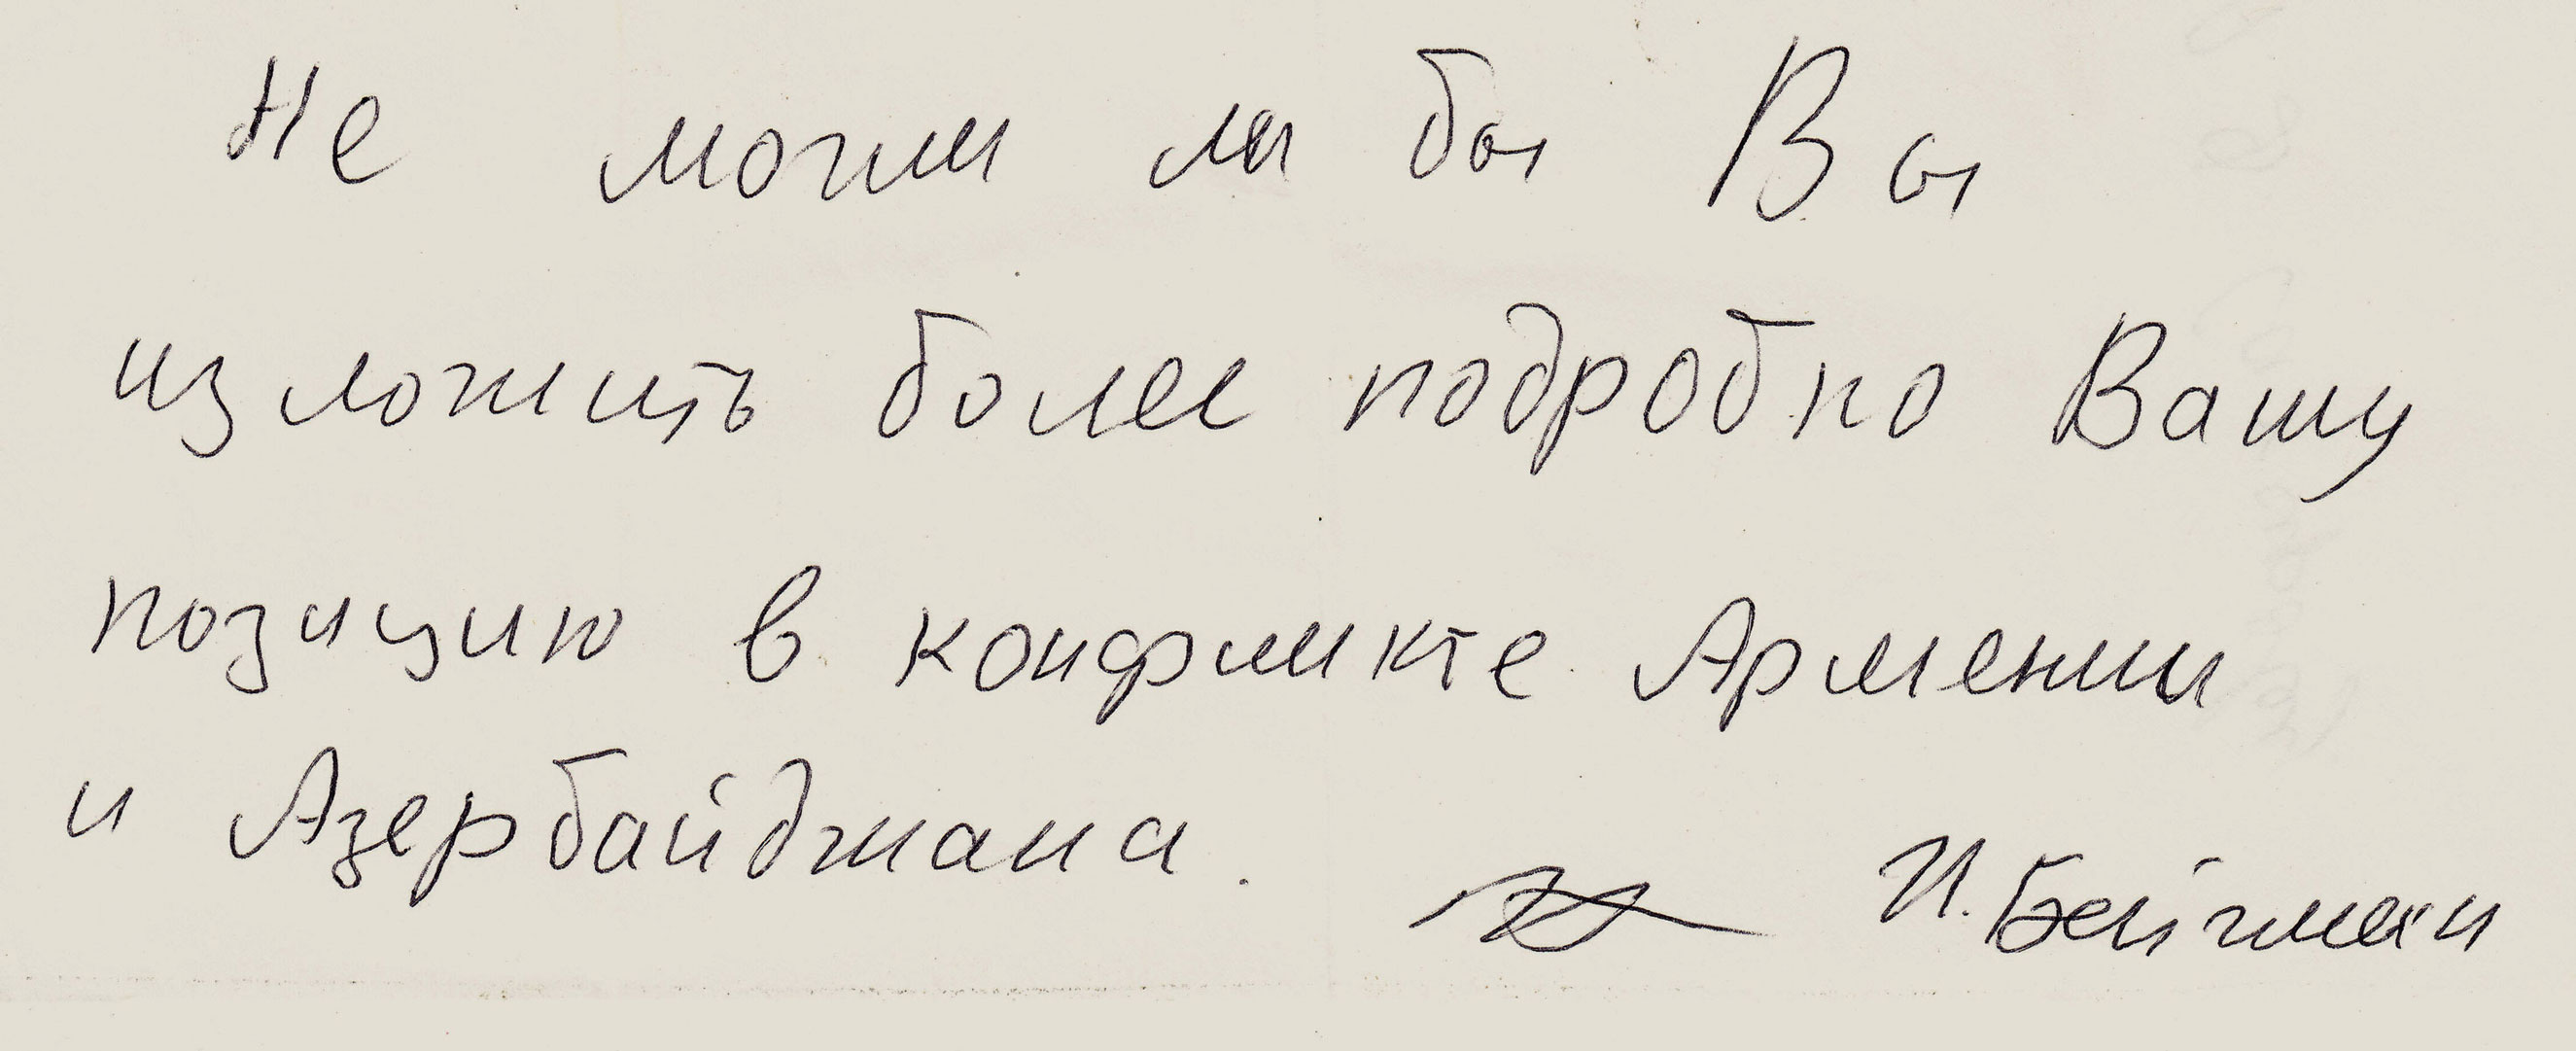 Не могли ли бы Вы
изложить более подробно Вашу
позицию в конфликте Армении
и Азербайджана.
И. Бейгман